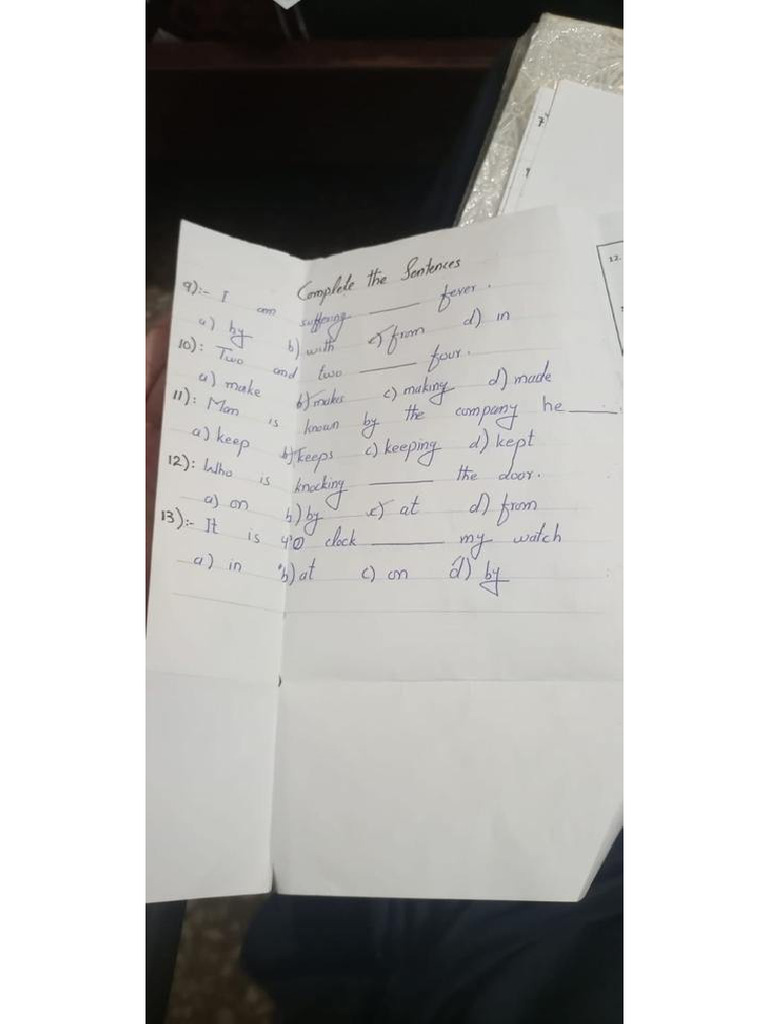 Complete the Sentences
9):- I am suffering ___ fever.
a) by b) with c) from d) in
10): Two and two ___ four.
a) make b) makes c) making d) made
11): Man is known by the company he ___.
a) keep b) keeps c) keeping d) kept
12): Who is knocking ___ the door.
a) on b) by c) at d) from
13):- It is 4'O clock ___ my watch
a) in b) at c) on d) by
7
12.